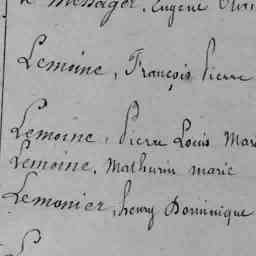 Le Messager, Eugène
Lemoine, François Pierre
Lemoine, Pierre Louis Mari
Lemoine, Mathurin marie
Lemonier, henry Dominique